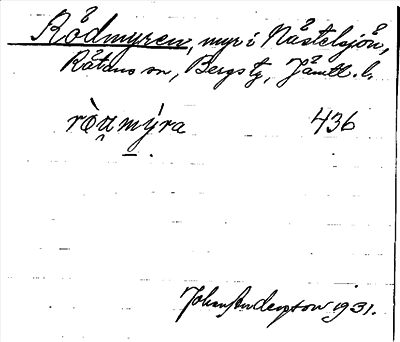 Rådmyren, myr i Nåstelsjön,
Råtans sn, Bergs tg, Jämtl. l.
ròu̯mýra 436
Johan Anderzson 1931.